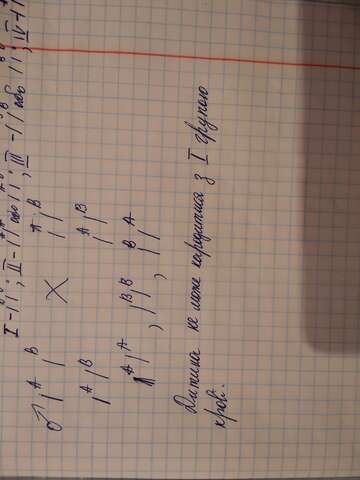 I - I⁰I⁰; II - IᴬIᴬ або IᴬI⁰; III - IᴮIᴮ або IᴮI⁰; IV - I
♂ Iᴬ Iᴮ × Iᴬ Iᴮ
Iᴬ Iᴮ Iᴬ Iᴮ
IᴬIᴬ, IᴮIᴮ, IᴮIᴬ
Дитина не може народитися з I групою
крові.